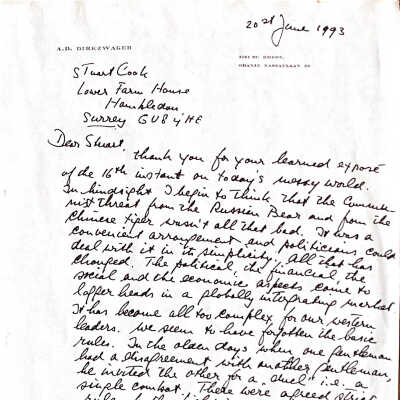 20st June 1993
A.D. DIRKZWAGER
ORANJE NASSAULAAN
Stuart Cook
Lower Farm House
Hambledon
Surrey GU8 4HE
Dear Stuart,
thank you for your learned exposé
of the 16th instant on today's messy world.
In hindsight I begin to think that the Commu-
nist threat from the Russian Bear and from the
Chinese tiger wasn't all that bad. It was a
convenient arrangement and politicians could
deal with it in its simplicity. All that has
changed. The political, the financial the
social and the economic aspects came to
logger heads in a globally integrating market
It has become all too complex for our western
leaders. We seem to have forgotten the basic
rules. In the olden days when one gentleman
had a disagreement with another gentleman,
he invited the other for a "duel" i.e. a
simple combat. There were agreed strict